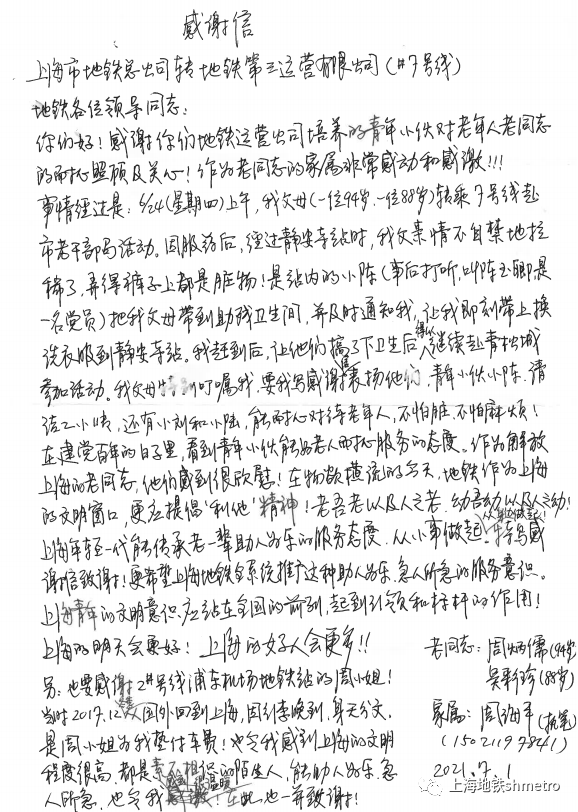 感谢信
上海市地铁总公司转地铁第三运营有限公司(#7号线)
地铁各位领导同志:
你们好!感谢你们地铁运营公司培养的青年小伙对老年人老同志
的耐心照顾及关心!作为老同志的家属非常感动和感激!!!
事情经过是:6/24(星期四)上午,我父母(一位94岁,一位88岁)转乘7号线赴
市老干部局活动。因服药后,经过静安寺站时,我父亲情不自禁地拉
稀了,弄得裤子上都是脏物!是站内的小陈(事后打听,叫陈玉卿是
一名党员)把我父母带到助残卫生间,并及时通知我,让我即刻带上换
洗衣服到静安寺站。我赶到后,让他们搞了下卫生后,继续赴青松城
参加活动。我父母特别叮嘱我,要我写感谢信表扬他们,青年小伙小陈,清
洁工小晴,还有小刘和小陆,能耐心对待老年人,不怕脏,不怕麻烦!
在建党百年的日子里,看到青年小伙能为老人耐心服务的态度。作为解放
上海的老同志,他们感到很欣慰!在物欲横流的今天,地铁作为上海
的文明窗口,更应提倡“利他”精神!老吾老以及人之老,幼吾幼以及人之幼!
上海年轻一代能传承老一辈助人为乐的服务态度,从小事做起。特写感
谢信致谢!更希望上海地铁全系统推广这种助人为乐,急人所急的服务意识。
上海青年的文明意识应站在全国的前列,起到引领和标杆的作用!
上海的明天会更好!上海的好人会更多!!
老同志:周炳儒(94岁)
吴彩珍(88岁)
家属:周海平(执笔)
(15021197841)
2021.7.1
另:也要感谢2#号线浦东机场地铁站的周小姐!
当时2017.12从国外回到上海,因行李晚到,身无分文,
是周小姐为我垫付车费!也令我感到上海的文明
程度很高,都是素不相识的陌生人,能助人为乐,急
人所急,也令我!在此也一并致谢!
上海地铁shmetro